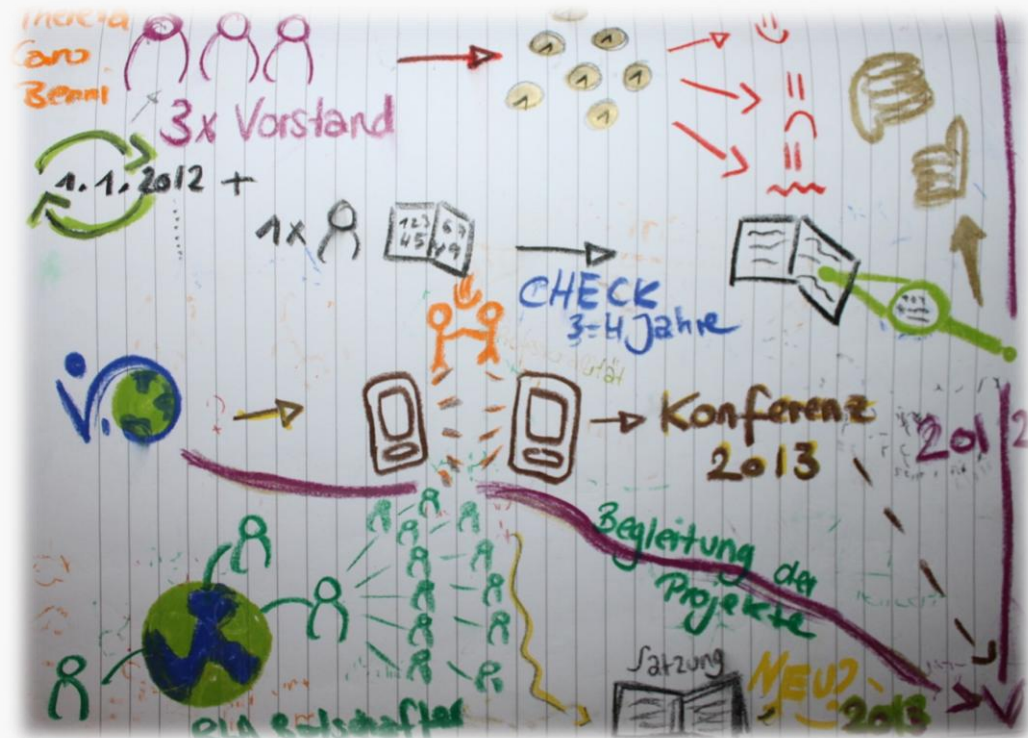 Caro
Benni
3x Vorstand
1.1.2012 +
1x
123
45
67
89
CHECK
3-4 Jahre
Konferenz
2013
2012
Begleitung der
Projekte
Satzung
NEU?
2013
Botschafter